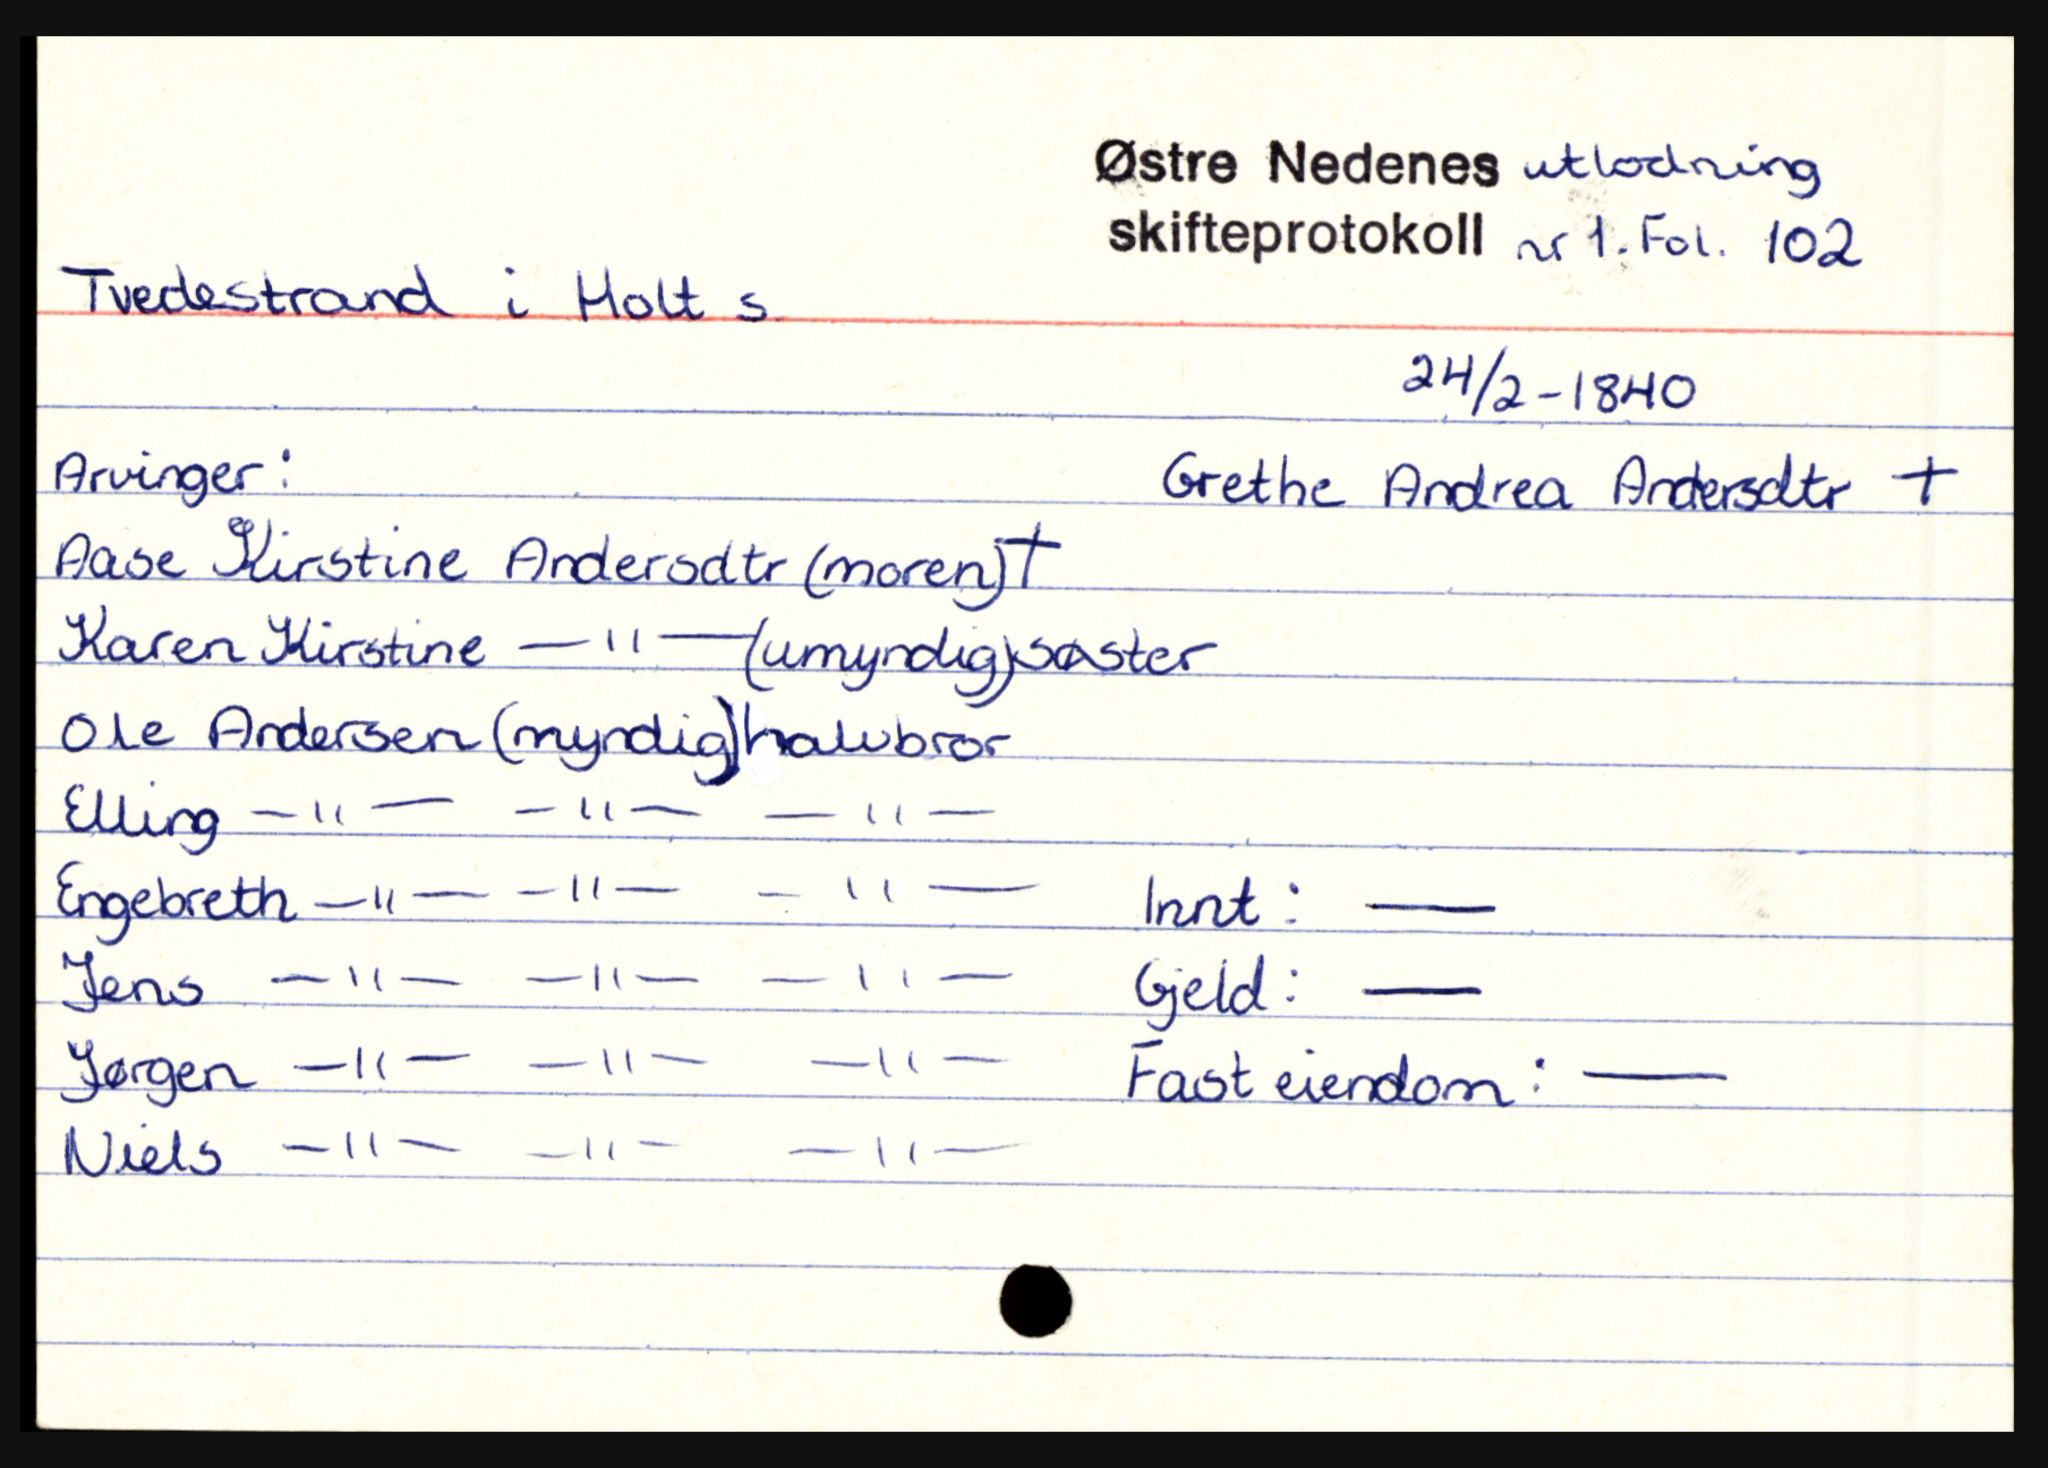 Østre Nedenes utlodning
skifteprotokoll nr 1. Fol. 102
Tvedestrand i Holt s.
24/2-1840
Arvinger:
Grethe Andrea Andersdtr +
Aase Kirstine Andersdtr (moren)†
Karen Kirstine —"— (umyndig) søster
Ole Andersen (myndig) halvbror
Elling —"— —"— —"—
Engebreth —"— —"— —"—
Innt: —
Jens —"— —"— —"—
Gjeld: —
Jørgen —"— —"— —"—
Fast eiendom: —
Niels —"— —"— —"—